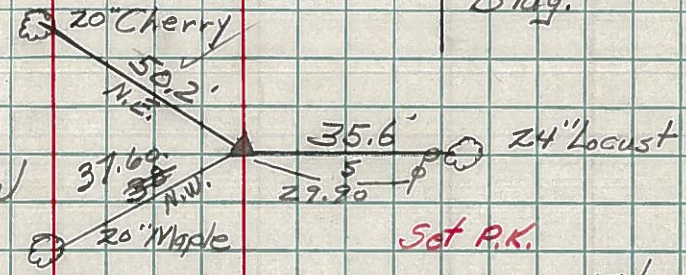 Bldg.
20" Cherry
50.2'
N.E.
35.6'
24" Locust
37.60
N.W.
S
29.90
20" Maple
Set P.K.